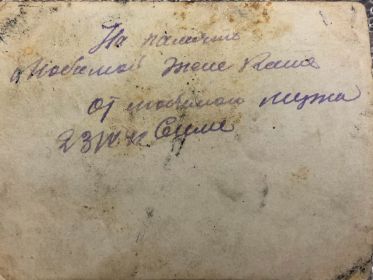 На память
Любимой Жене Кате
от любимого мужа
23/IV Семе